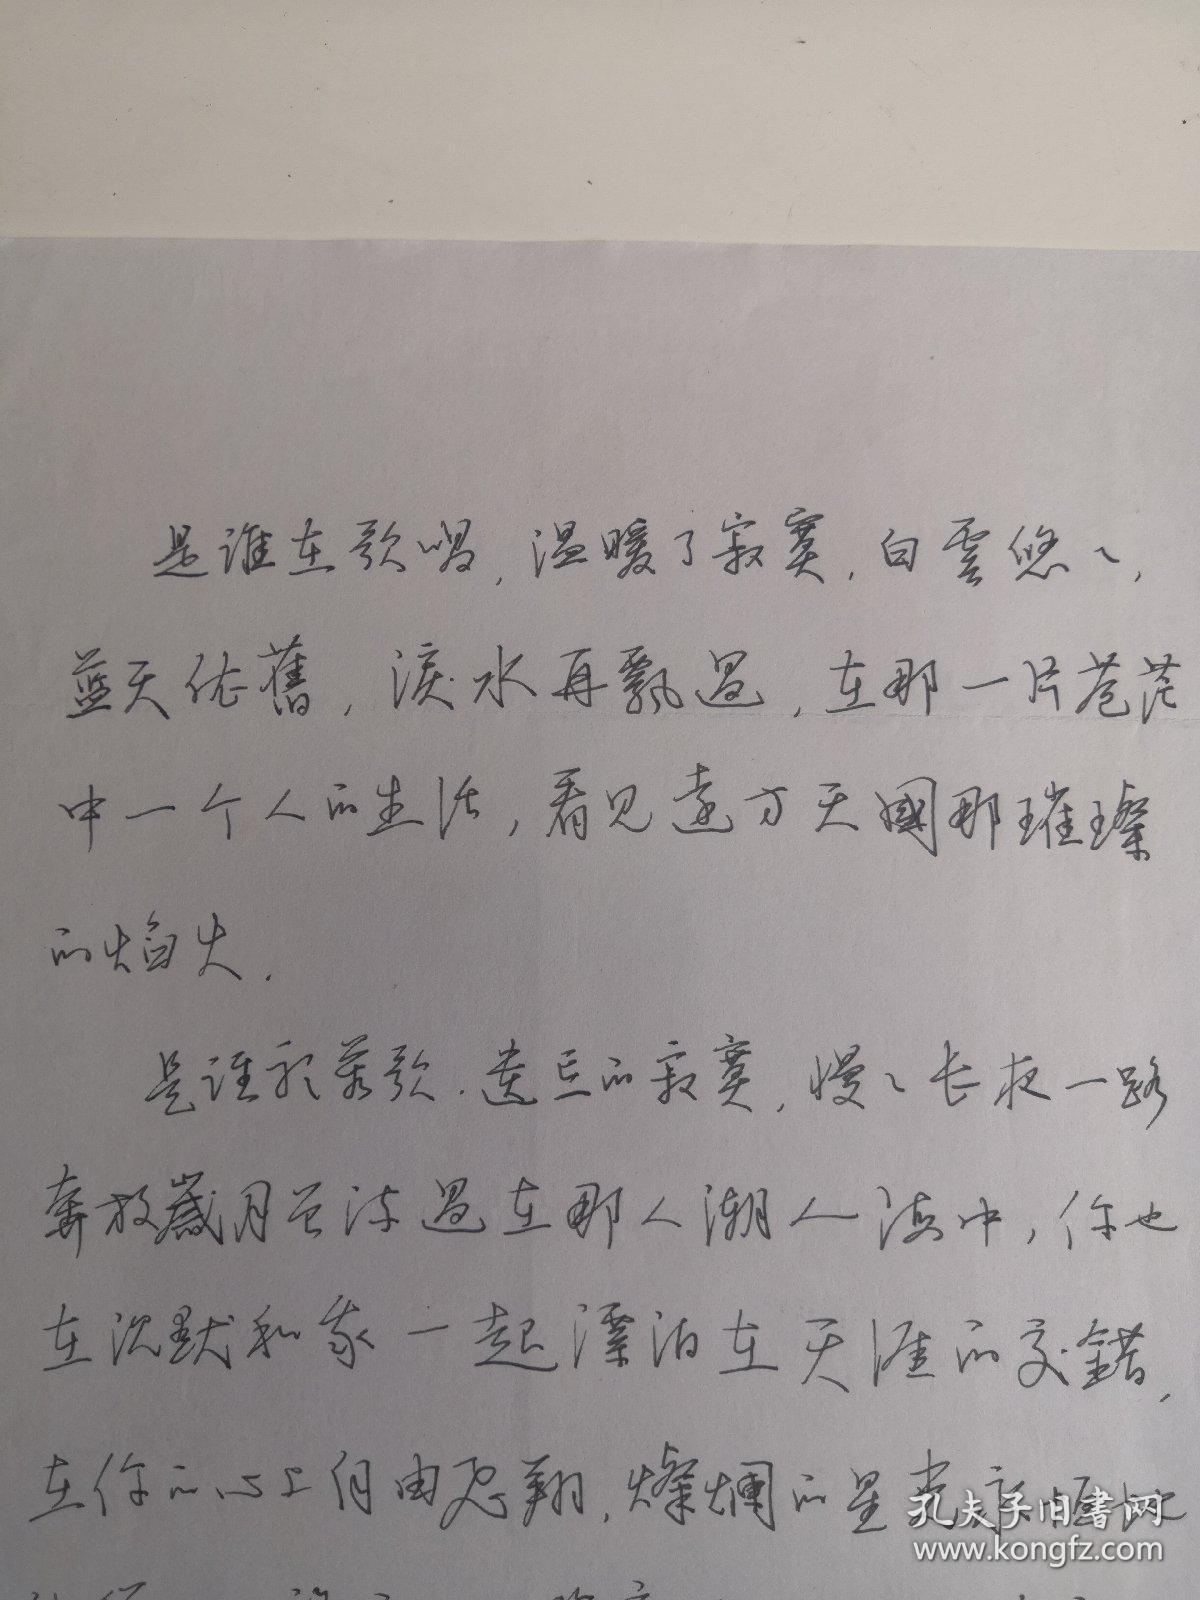 是谁在歌唱，温暖了寂寞，白雲悠々，
蓝天依舊，淚水再飘過，在那一片苍茫
中一个人的生活，看见遠方天國那璀璨
的焰火．
是谁聆荖歌．遗忘的寂寞，慢々长夜一路
奔放歲月曾流過在那人潮人海中，你也
在沉默和我一起漂泊在天涯的交錯，
在你的心上自由飞翔，燦爛的星光
孔夫子旧書网
www.kongfz.com